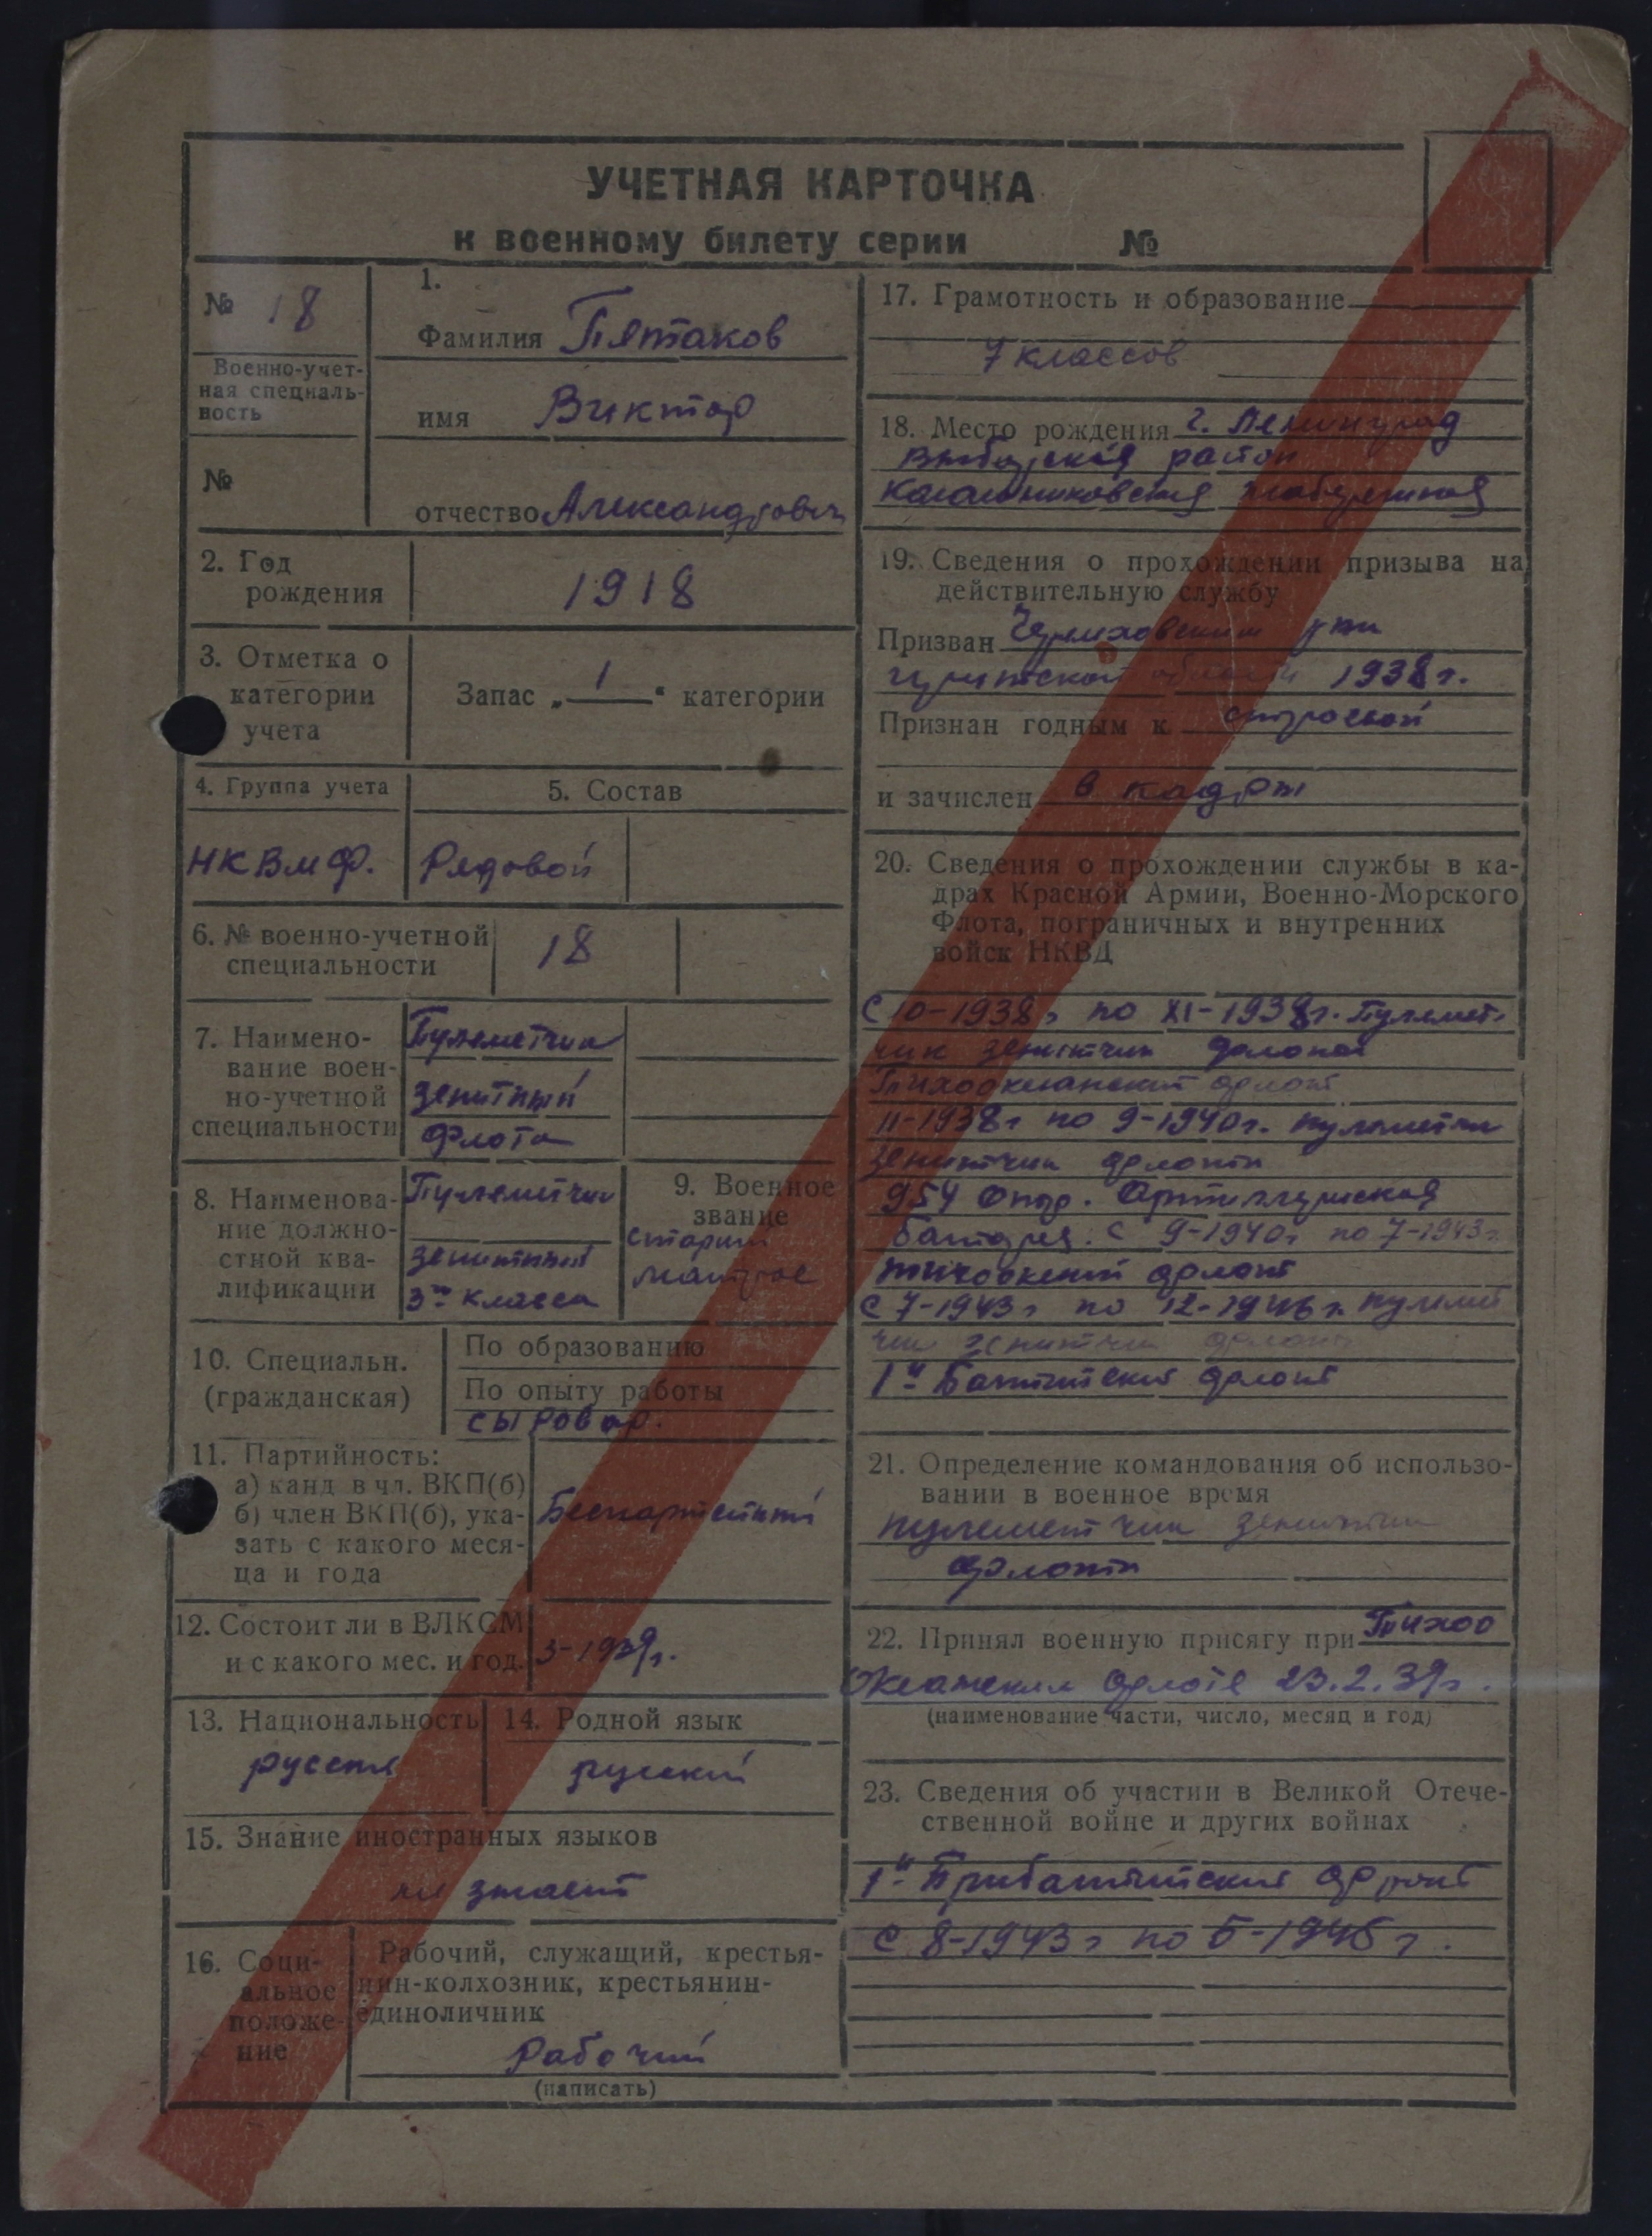 УЧЕТНАЯ КАРТОЧКА
к военному билету серии №
№ 18
Военно-учет-
ная специаль-
ность
№
1.
Фамилия Пятаков
имя Виктор
отчество Александрович
2. Год
рождения
1918
3. Отметка о
категории
учета
Запас „ 1 “ категории
4. Группа учета
НКВМФ.
5. Состав
Рядовой
6. № военно-учетной
специальности
18
7. Наимено-
вание воен-
но-учетной
специальности
Пулеметчик
зенитный
флота
8. Наименова-
ние должно-
стной ква-
лификации
Пулеметчик
зенитный
3го класса
9. Военное
звание
старший
матрос
10. Специальн.
(гражданская)
По образованию
По опыту работы
сыровар.
11. Партийность:
а) канд. в чл. ВКП(б)
б) член ВКП(б), ука-
зать с какого меся-
ца и года
Беспартейный
12. Состоит ли в ВЛКСМ
и с какого мес. и год.
3-1939г.
13. Национальность
русский
14. Родной язык
русский
15. Знание иностранных языков
не знает
16. Соци-
альное
положе-
ние
Рабочий, служащий, крестья-
нин-колхозник, крестьянин-
единоличник
Рабочий
(написать)
17. Грамотность и образование
7 классов
18. Место рождения г. Ленинград
район
Калашниковская набережная
19. Сведения о прохождении призыва на
действительную службу
Призван Черемховским
области 1938г.
Признан годным к строевой
и зачислен в кадры
20. Сведения о прохождении службы в ка-
драх Красной Армии, Военно-Морского
Флота, пограничных и внутренних
войск НКВД
С 10-1938г по XI-1938г. Пулемет-
чик зенитчик флота
Тихоокеанский флот
11-1938г по 9-1940г. пулеметчик
зенитчик флота
954 Артиллерийская
батарея. С 9-1940г по 7-1943г
флот
С 7-1943г по 12-1946г.
зенитчик флота
1й Балтийский флот
21. Определение командования об использо-
вании в военное время
пулеметчик зенитчик
флота
22. Принял военную присягу при Тихоо
Океанском флоте 23.2.39г.
(наименование части, число, месяц и год)
23. Сведения об участии в Великой Отече-
ственной войне и других войнах
1й Прибалтийский фронт
С 8-1943г по 5-1945г.